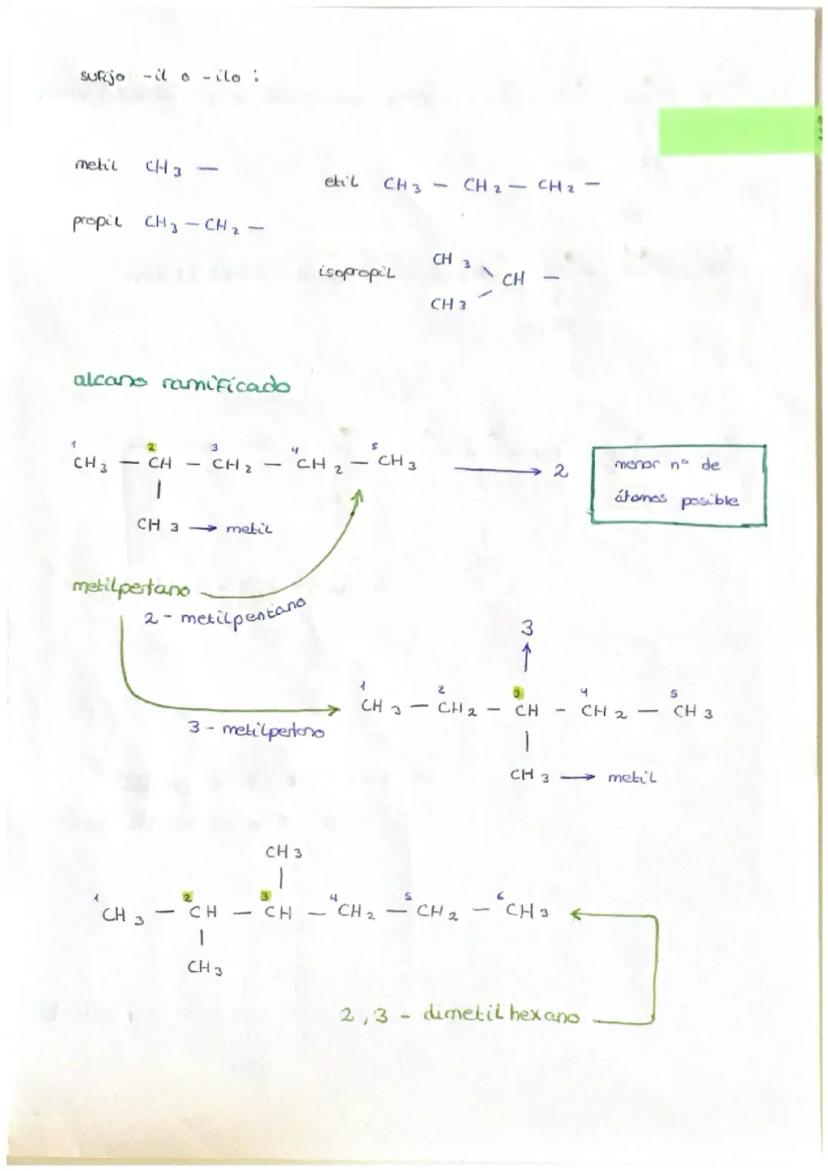 sufijo -il o -ilo :
metil CH3 —
etil CH3 — CH2 — CH2 —
propil CH3 — CH2 —
isopropil CH3 CH —
CH3
alcano ramificado
1 2 3 4 5
CH3 — CH — CH2 — CH2 — CH3 → 2
|
CH3 → metil
menor nº de
átomos posible
metilpentano
2 - metilpentano
3
↑
1 2 3 4 5
CH3 — CH2 — CH — CH2 — CH3
|
3 - metilpentano
CH3 → metil
CH3
|
1 2 3 4 5 6
CH3 — CH — CH — CH2 — CH2 — CH3
|
CH3
2,3 - dimetilhexano